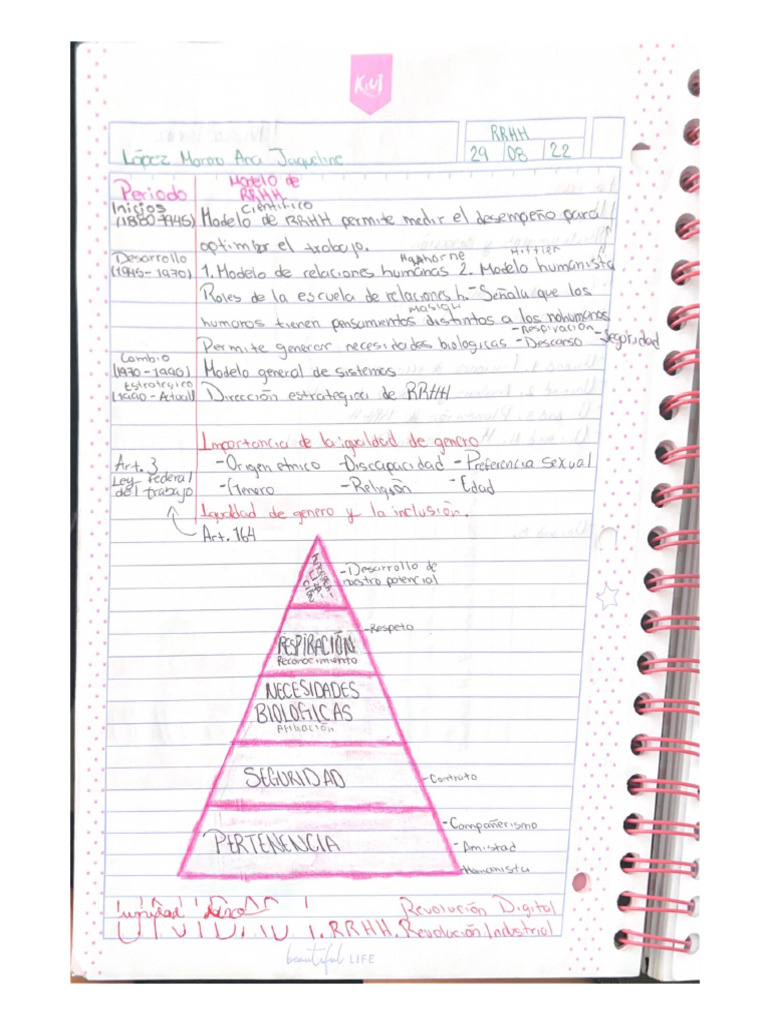 KIUT
RRHH
López Moroo Ana Jaqueline 29 08 22
Periodo Modelo de RRHH
Inicios Cientifico
(1880-1945) Modelo de RRHH permite medir el desempeño para
optimbar el trabajo.
Desarrollo Hawthorne
(1945-1970) 1. Modelo de relaciones humanas 2. Modelo humanista
Roles de la escuela de relaciones h. - Señala que los
humaros tienen pensamientos distintos a los nohumanos
Permite generar necesidades biologicas -Respiración -Descanso -Seguridad
Cambio
(1970-1990) Modelo general de sistemas
Estrategico
(1990-Actual) Dirección estrategica de RRHH
Importancia de la igualdad de genero
Art. 3 -Origen etnico -Discapacidad -Preferencia sexual
Ley federal
del trabajo -Genero -Religión -Edad
Igualdad de genero y la inclusión.
Art. 164
-Desarrollo de
nuestro potencial
-Respeto
RESPIRACIÓN
Reconocimiento
NECESIDADES
BIOLOGICAS
Afiliación
SEGURIDAD
-Contrato
-Compañerismo
PERTENENCIA
-Amistad
-Humanista
Revolución Digital
1. RRHH. Revolución Industrial
beautiful LIFE